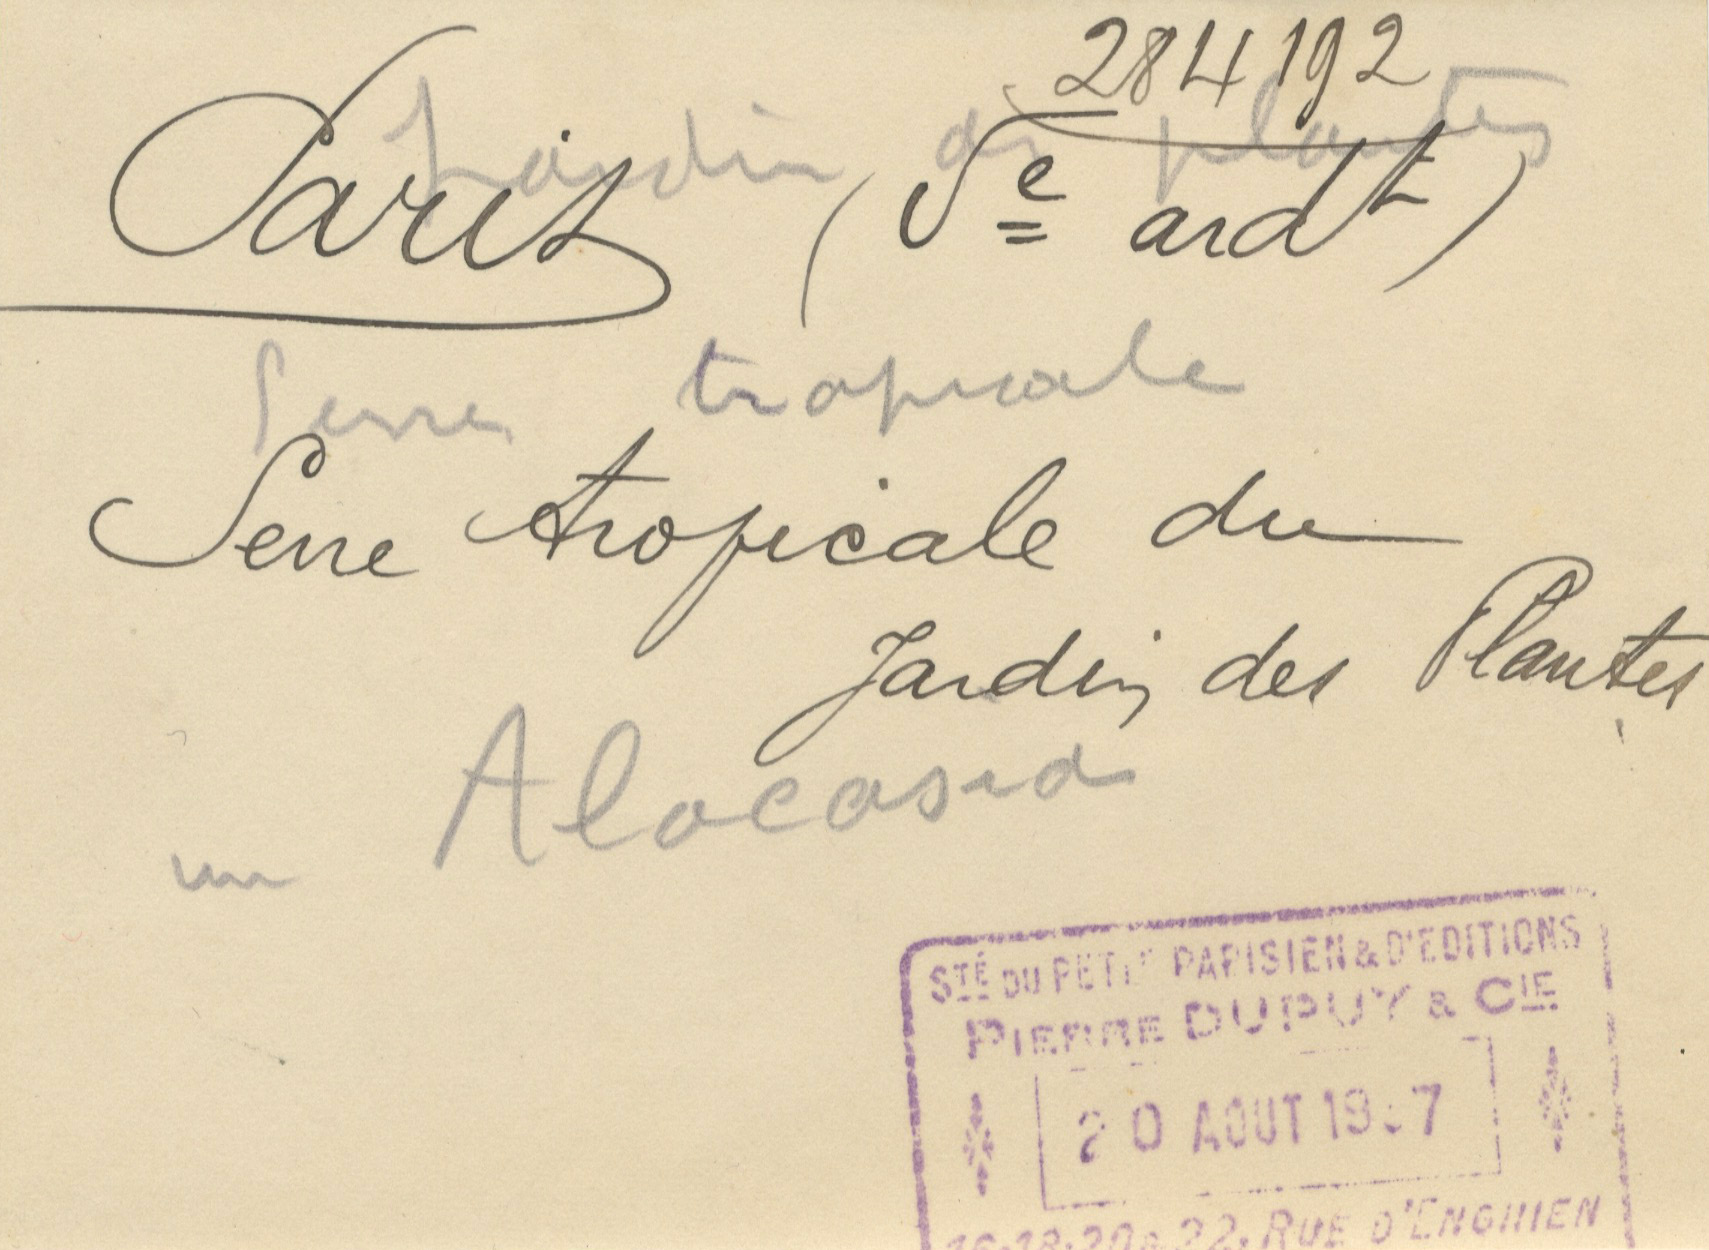 284192
Jardin des plantes
Paris (5e ardt)
Serre tropicale
Serre tropicale du
Jardin des Plantes
un Alocasia
STÉ DU PETIT PARISIEN & D'EDITIONS
PIERRE DUPUY & CIE
20 AOUT 1937
16.18.20 & 22, RUE D'ENGHIEN